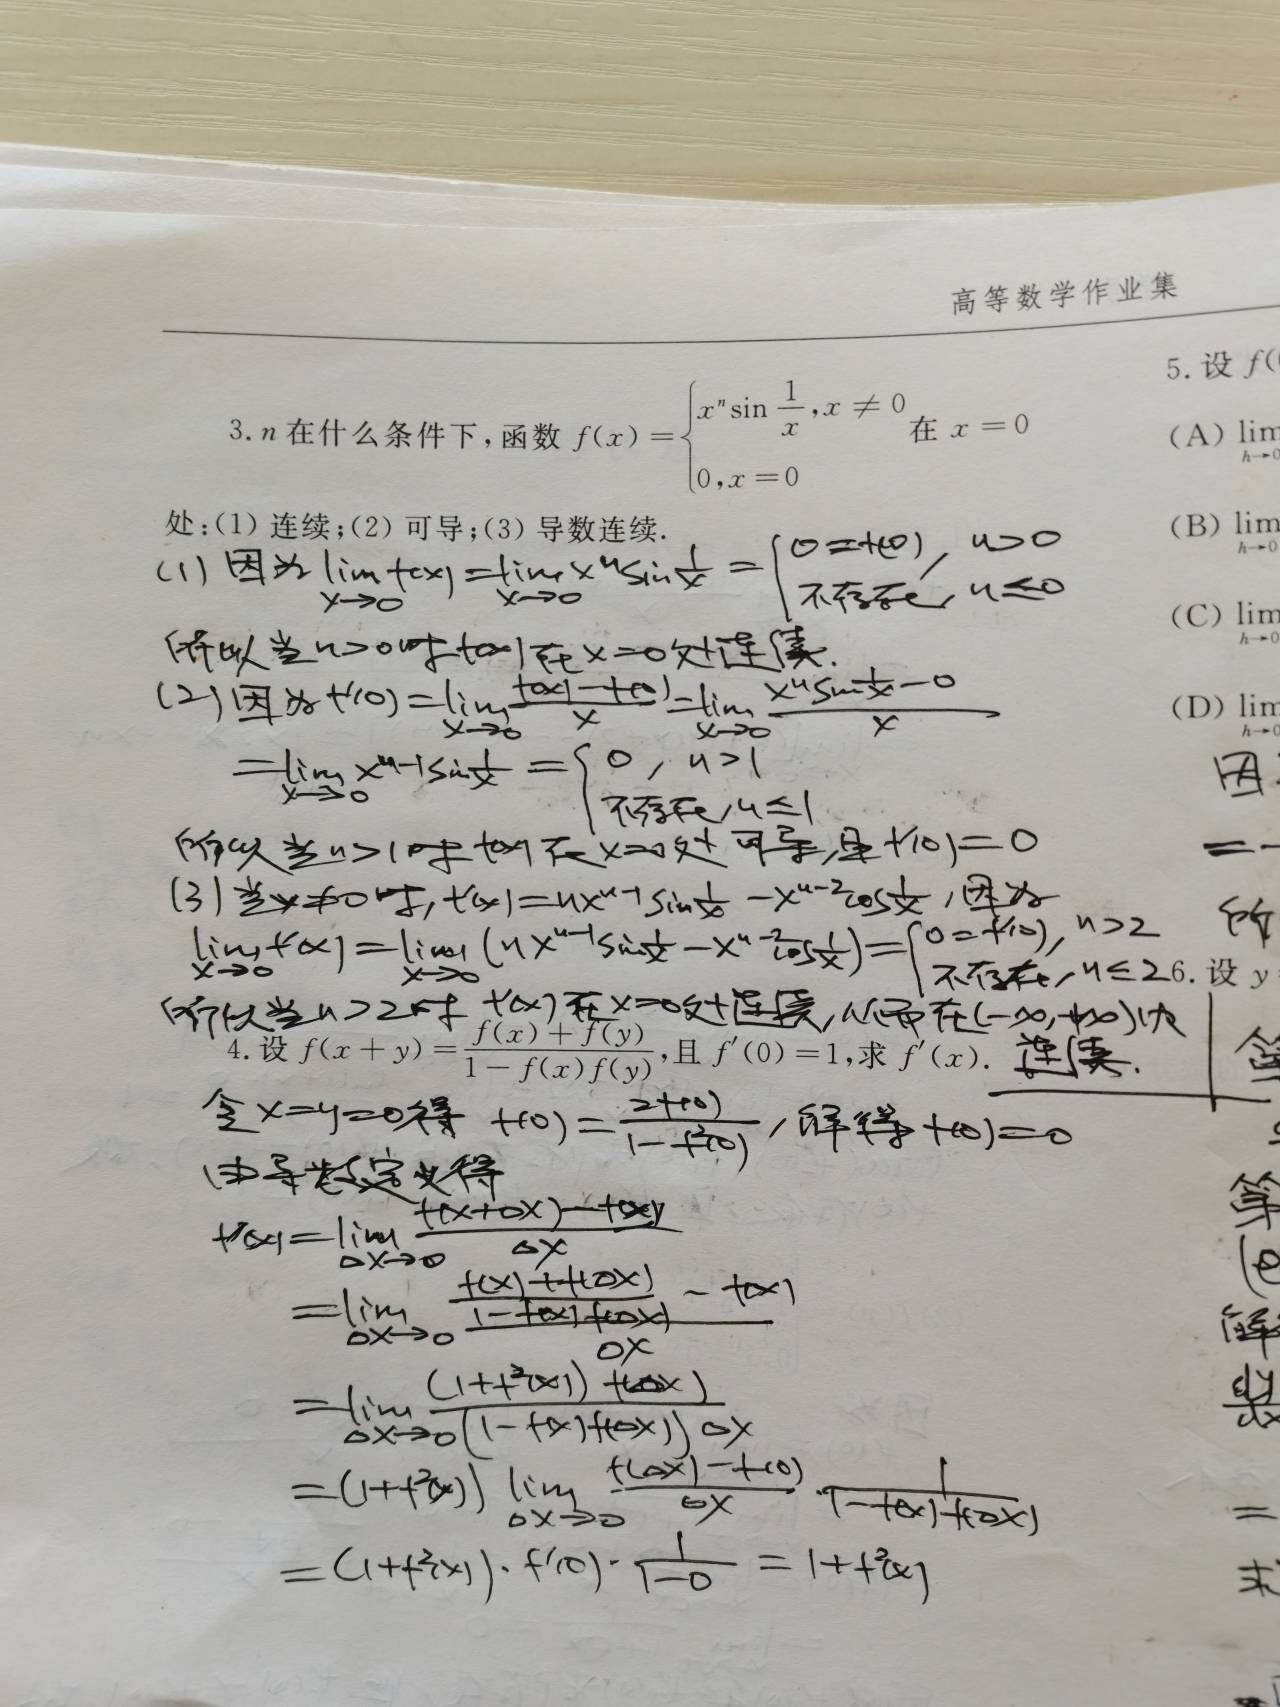 高等数学作业集
3. n 在什么条件下,函数 f(x)={x^n sin 1/x, x≠0
0, x=0 在 x=0
处:(1) 连续;(2) 可导;(3) 导数连续.
(1) 因为 lim_{x→0} f(x)=lim_{x→0} x^n sin 1/x={0=f(0), n>0
不存在, n≤0
所以当n>0时f(x)在x=0处连续.
(2) 因为f'(0)=lim_{x→0} (f(x)-f(0))/x=lim_{x→0} (x^n sin 1/x -0)/x
=lim_{x→0} x^{n-1} sin 1/x={0, n>1
不存在, n≤1
所以当n>1时f(x)在x=0处可导,且f'(0)=0
(3) 当x≠0时, f'(x)=nx^{n-1} sin 1/x - x^{n-2} cos 1/x, 因为
lim_{x→0} f'(x)=lim_{x→0} (nx^{n-1} sin 1/x - x^{n-2} cos 1/x)={0=f'(0), n>2
不存在, n≤2
所以当n>2时 f'(x)在x=0处连续,从而在(-∞,+∞)内
连续.
4. 设 f(x+y)=(f(x)+f(y))/(1-f(x)f(y)),且 f'(0)=1,求 f'(x).
令x=y=0得 f(0)=2f(0)/(1-f²(0)), 解得f(0)=0
由导数定义得
f'(x)=lim_{Δx→0} (f(x+Δx)-f(x))/Δx
=lim_{Δx→0} ((f(x)+f(Δx))/(1-f(x)f(Δx)) - f(x))/Δx
=lim_{Δx→0} (1+f²(x))f(Δx)/((1-f(x)f(Δx))Δx)
=(1+f²(x)) lim_{Δx→0} (f(Δx)-f(0))/Δx · 1/(1-f(x)f(Δx))
=(1+f²(x))·f'(0)·1/(1-0)=1+f²(x)
5. 设 f(
(A) lim_{h→0}
(B) lim_{h→0}
(C) lim_{h→0}
(D) lim_{h→0}
因
=-
所
6. 设 y
第
解
=
求